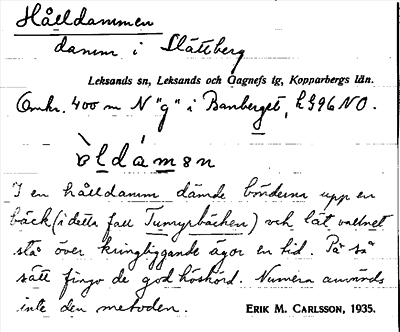 Hålldammen
damm i Slättberg
Leksands sn, Leksands och Gagnefs tg, Kopparbergs län.
Omkr. 400 m N "g" i Banberget, k 596 NO.
òldámen
I en hålldamm dämde bönderna upp en
bäck (i detta fall Tunyrbäcken) och lät vattnet
stå över kringliggande ägor en tid. På så
sätt fingo de god höskörd. Numera används
inte den metoden. ERIK M. CARLSSON, 1935.